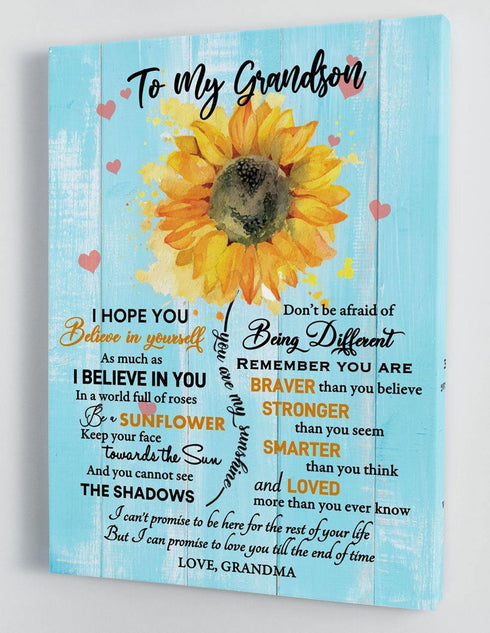 To My Grandson
I HOPE YOU
Believe in yourself
As much as
I BELIEVE IN YOU
In a world full of roses
Be a SUNFLOWER
Keep your face
towards the Sun
And you cannot see
THE SHADOWS
you are my sunshine
Don't be afraid of
Being Different
REMEMBER YOU ARE
BRAVER than you believe
STRONGER
than you seem
SMARTER
than you think
and LOVED
more than you ever know
I can't promise to be here for the rest of your life
But I can promise to love you till the end of time
LOVE, GRANDMA